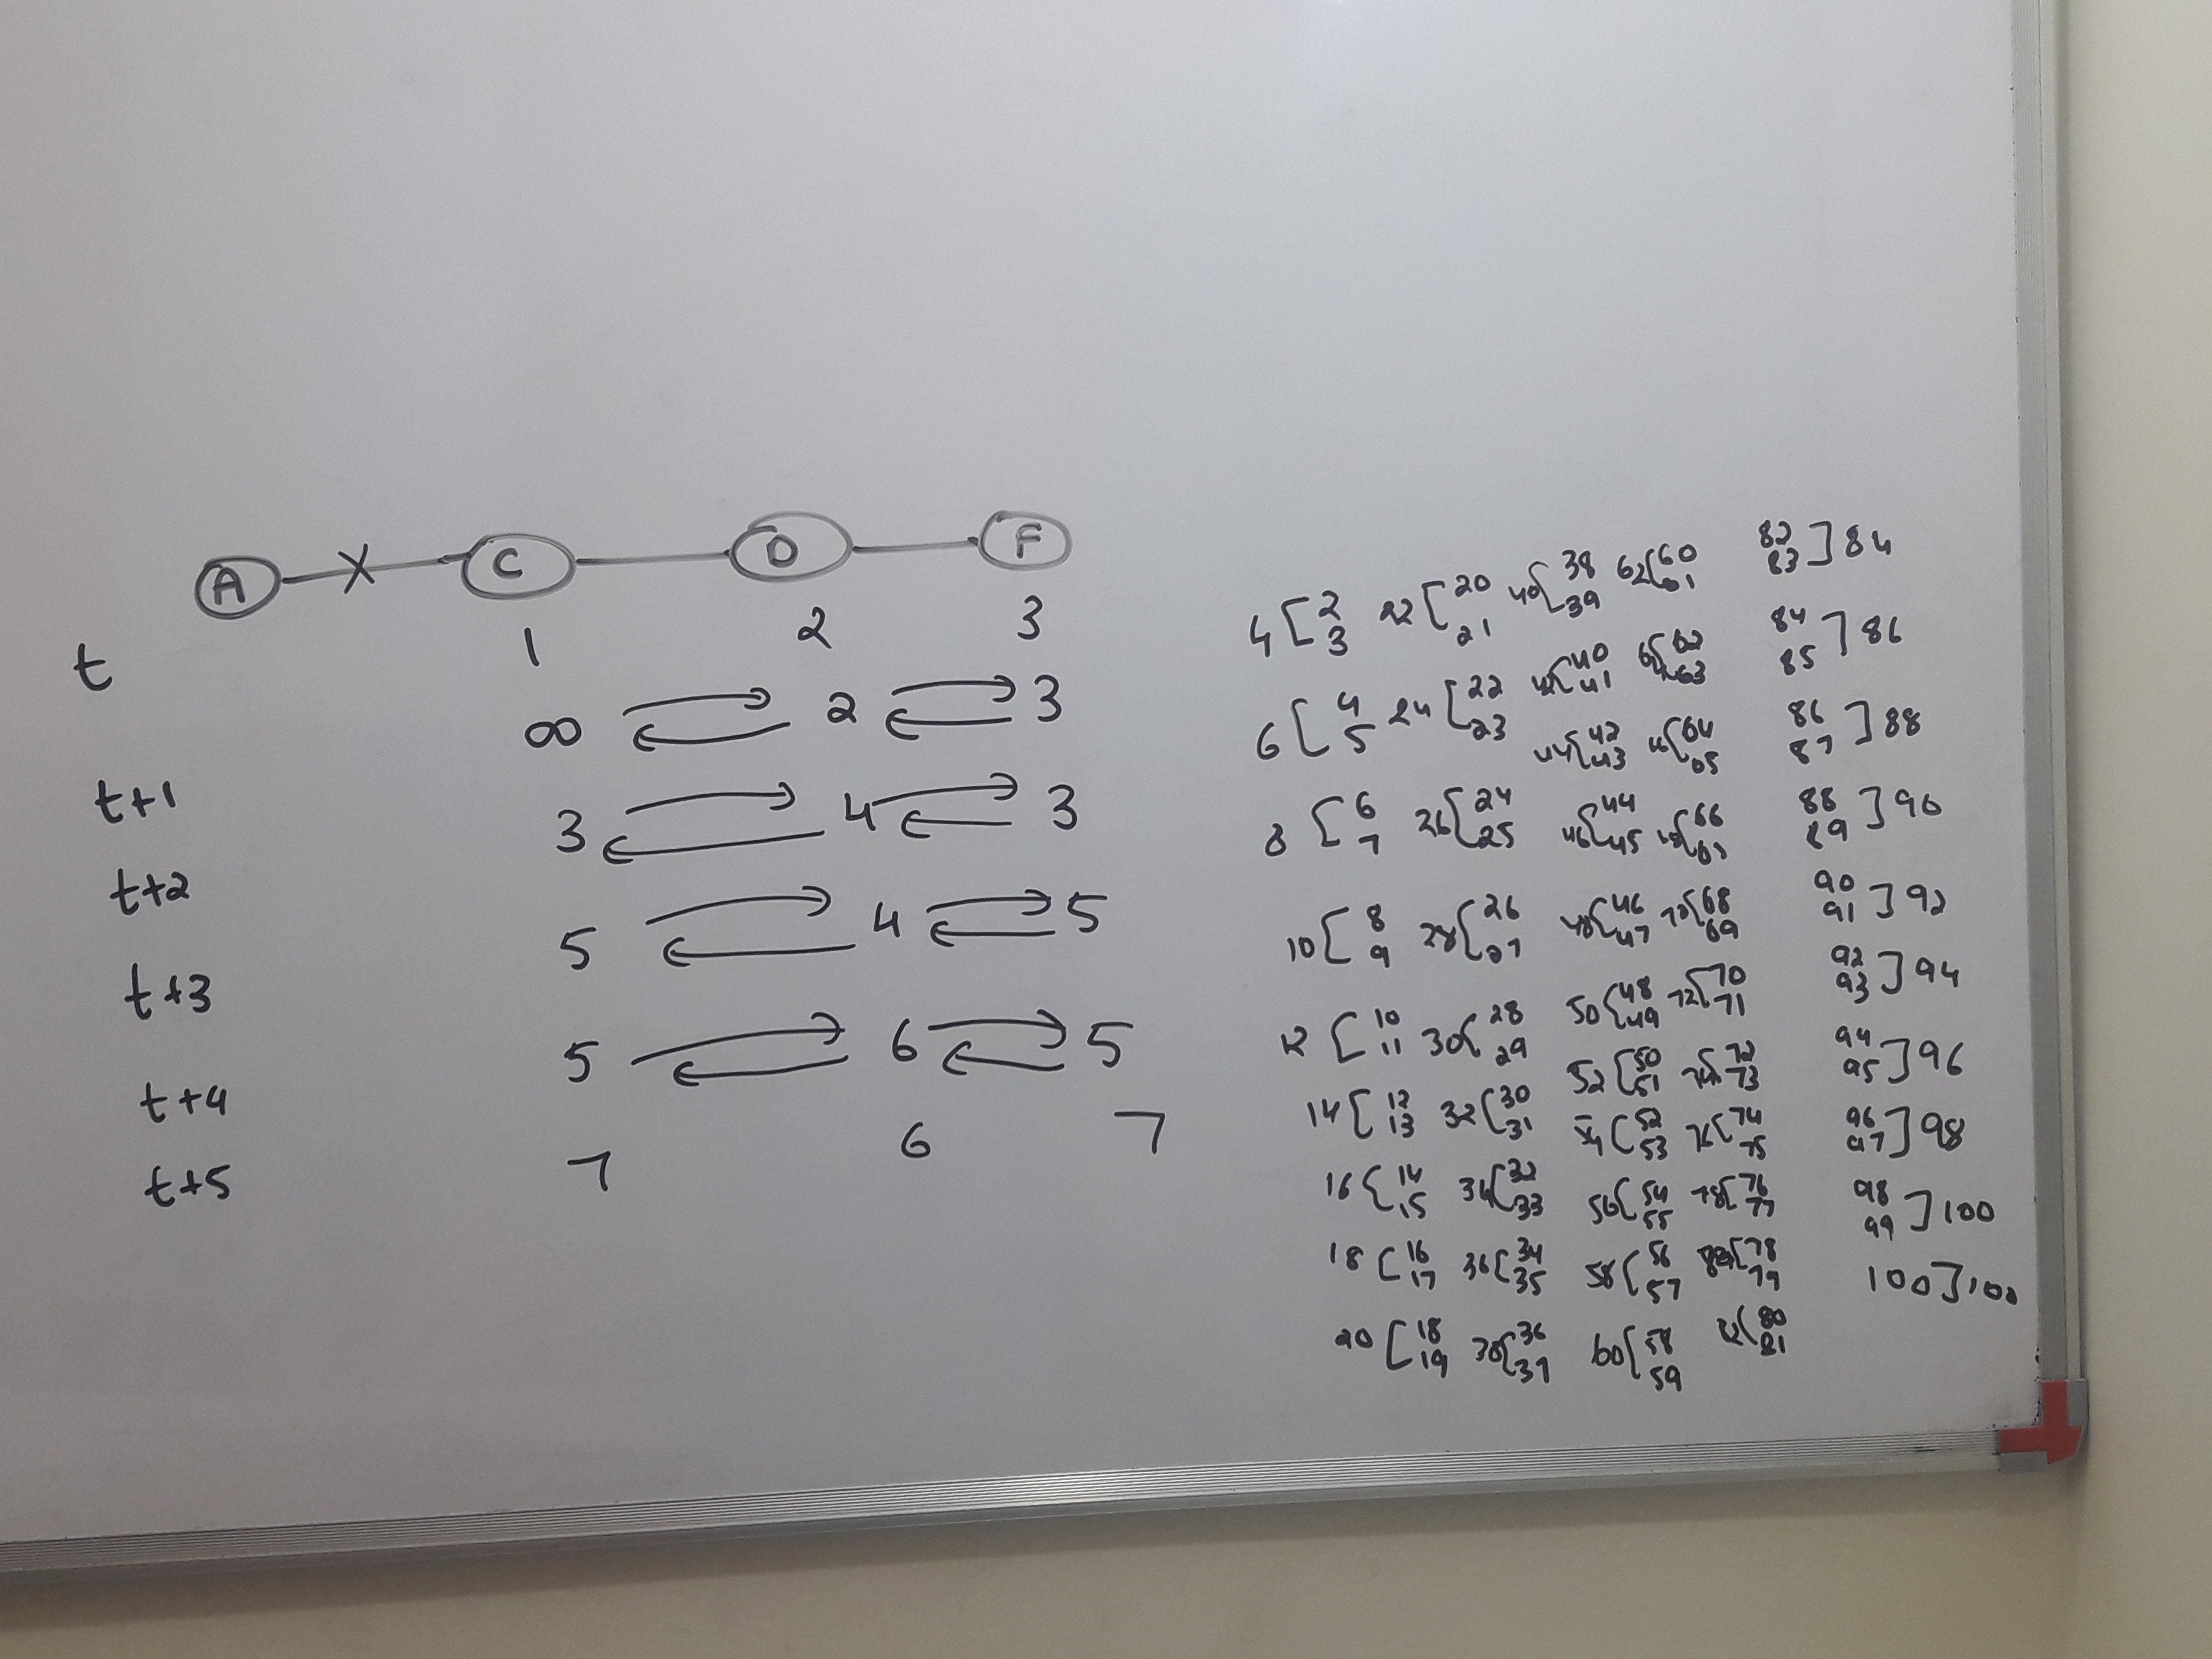 A X C D F
t 1 2 3
∞ 2 3
t+1 3 4 3
t+2 5 4 5
t+3 5 6 5
t+4 7 6 7
t+5
4 [ 2 3 22 [ 20 21 40 [ 38 39 62 [ 60 61 82 83 ] 84
6 [ 4 5 24 [ 22 23 42 [ 40 41 62 63 84 85 ] 86
44 [ 42 43 64 65 86 87 ] 88
8 [ 6 7 26 [ 24 25 46 [ 44 45 66 67 88 89 ] 90
10 [ 8 9 28 [ 26 27 48 [ 46 47 70 [ 68 69 90 91 ] 92
12 [ 10 11 30 [ 28 29 50 [ 48 49 72 [ 70 71 92 93 ] 94
14 [ 12 13 32 [ 30 31 52 [ 50 51 74 [ 72 73 94 95 ] 96
54 [ 52 53 76 [ 74 75 96 97 ] 98
16 [ 14 15 34 [ 32 33 56 [ 54 55 78 [ 76 77 98 99 ] 100
18 [ 16 17 36 [ 34 35 58 [ 56 57 [ 78 79 100 ] 100
20 [ 18 19 38 [ 36 37 60 [ 58 59 82 [ 80 81